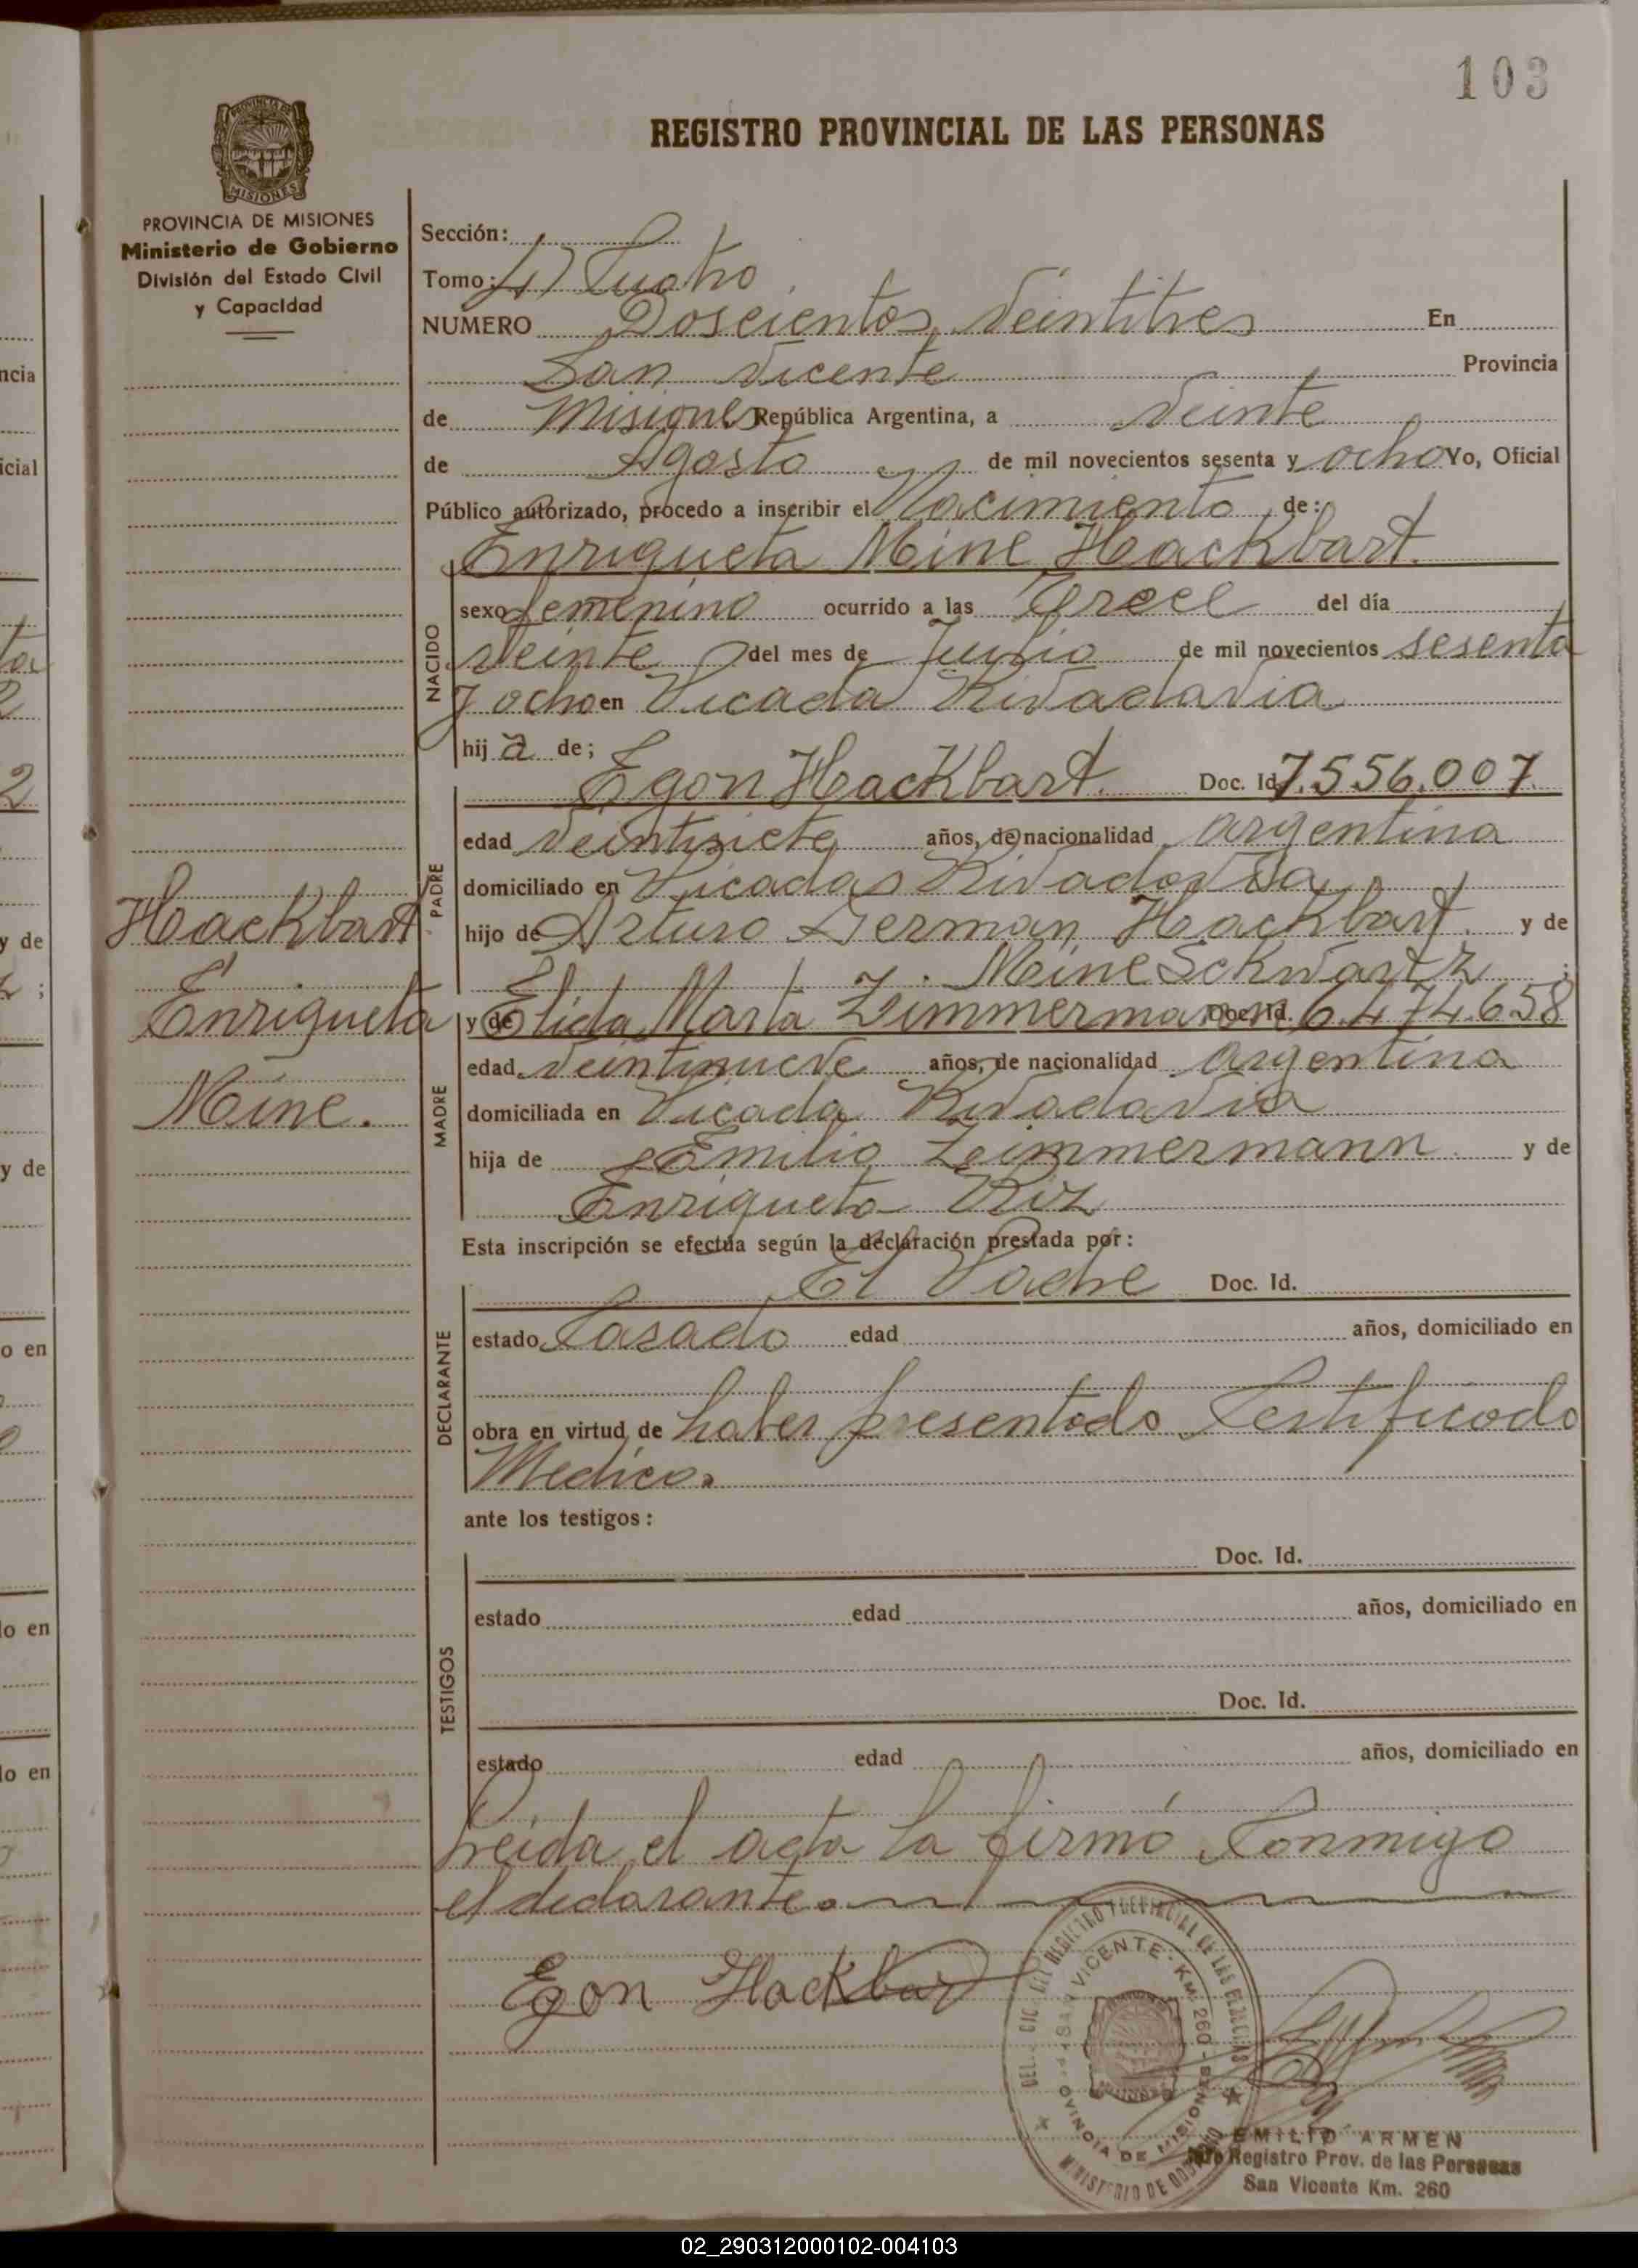 103
REGISTRO PROVINCIAL DE LAS PERSONAS
PROVINCIA DE
MISIONES
PROVINCIA DE MISIONES
Ministerio de Gobierno
División del Estado Civil
y Capacidad
Sección:
Tomo: 4) Cuatro
NUMERO Doscientos Veintitres En
San Vicente Provincia
de Misiones República Argentina, a Veinte
de Agosto de mil novecientos sesenta y ocho Yo, Oficial
Público autorizado, procedo a inscribir el Nacimiento de:
Enriqueta Mine Hackbart.
NACIDO
sexo femenino ocurrido a las Trece del día
Veinte del mes de de mil novecientos sesenta
y ocho en Picada Rivadavia
hija de;
PADRE
Egon Hackbart. Doc. Id. 7.556.007.
edad Veintisiete años, de nacionalidad argentina
domiciliado en Picadas Rivadavia
hijo de Arturo German Hackbart. y de
Mine Schwartz ;
Hackbart
Enriqueta
Mine.
MADRE
y de Elida Marta Zimmermann Doc. Id. 6.474.658
edad Veintinueve años, de nacionalidad argentina
domiciliada en Picada Rivadavia
hija de Emilio Zimmermann y de
Enriqueta
Esta inscripción se efectúa según la declaración prestada por:
DECLARANTE
El Padre Doc. Id.
estado Casado edad años, domiciliado en
obra en virtud de haber presentado Certificado
Medico.
ante los testigos:
TESTIGOS
Doc. Id.
estado edad años, domiciliado en
Doc. Id.
estado edad años, domiciliado en
Leida el acta la firmó Conmigo
el declarante.
Egon Hackbart
SAN VICENTE - KM. 260 -
PROVINCIA DE MISIONES
MINISTERIO DE GOBIERNO
EMILIO ARMEN
Registro Prov. de las Personas
San Vicente Km. 260
ncia
icial
y de
y de
o en
lo en
lo en
02_290312000102-004103